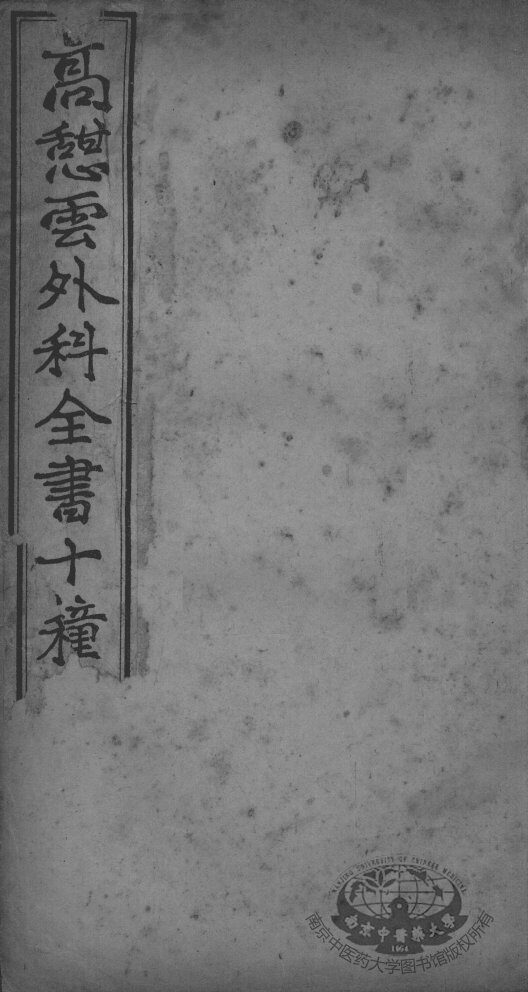 高憩雲外科全書十種
NANJING UNIVERSITY OF CHINESE MEDICINE
南京中醫藥大學
1954
南京中医药大学图书馆版权所有